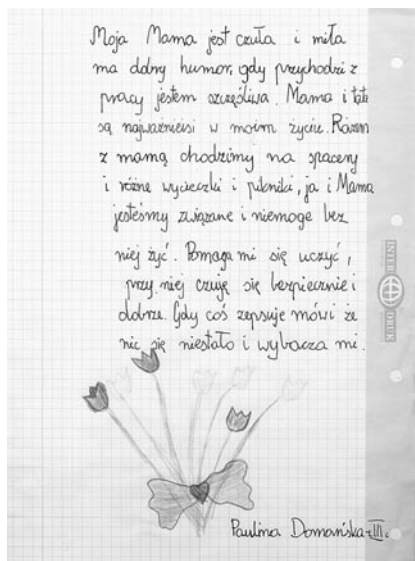 Moja Mama jest czuła i miła
ma dobry humor, gdy przychodzi z
pracy jestem szczęśliwa. Mama i tata
są najważnieisi w moim życiu. Razem
z mamą chodzimy na spacery
i różne wycieczki i pikniki, ja i Mama
jesteśmy związane i niemoge bez
niej żyć. Pomaga mi się uczyć,
przy niej czuję się bezpiecznie i
dobrze. Gdy coś zepsuje mówi że
nic się niestało i wybacza mi.
Paulina Domańska III c
INTER DRUK